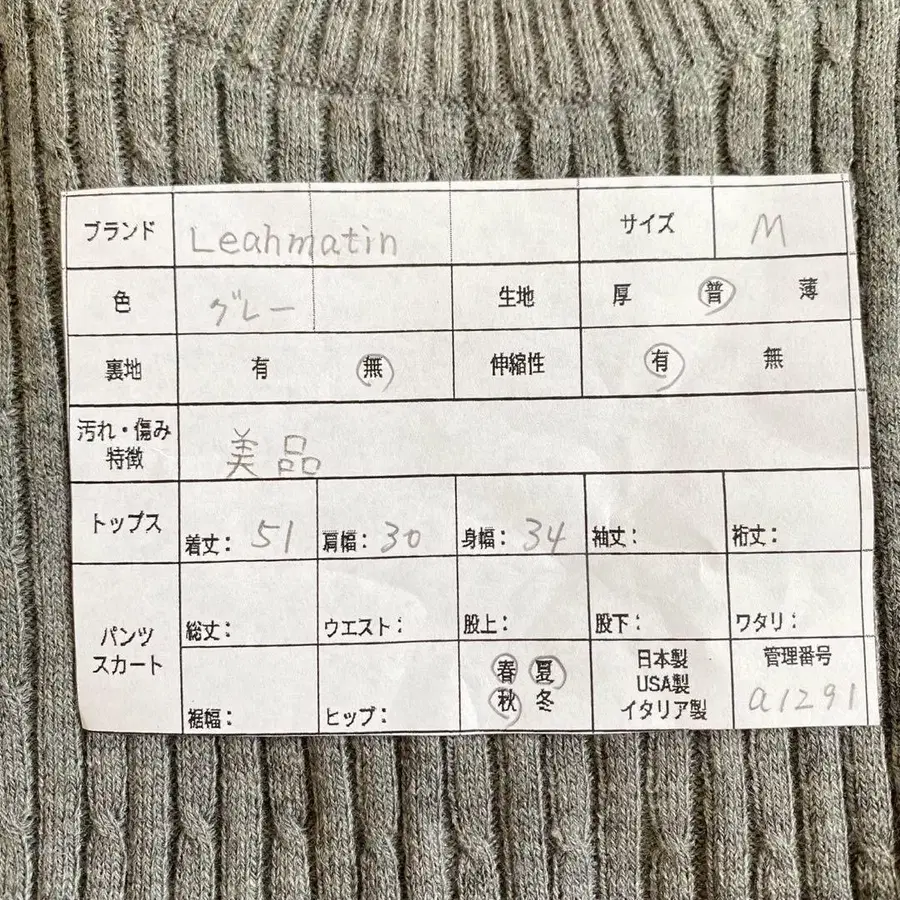 ブランド Leahmatin サイズ M
色 グレー 生地 厚 普 薄
裏地 有 無 伸縮性 有 無
汚れ・傷み
特徴 美品
トップス 着丈: 51 肩幅: 30 身幅: 34 袖丈: 裄丈:
パンツ
スカート
総丈: ウエスト: 股上: 股下: ワタリ:
裾幅: ヒップ:
春 夏
秋 冬
日本製
USA製
イタリア製
管理番号
a1291